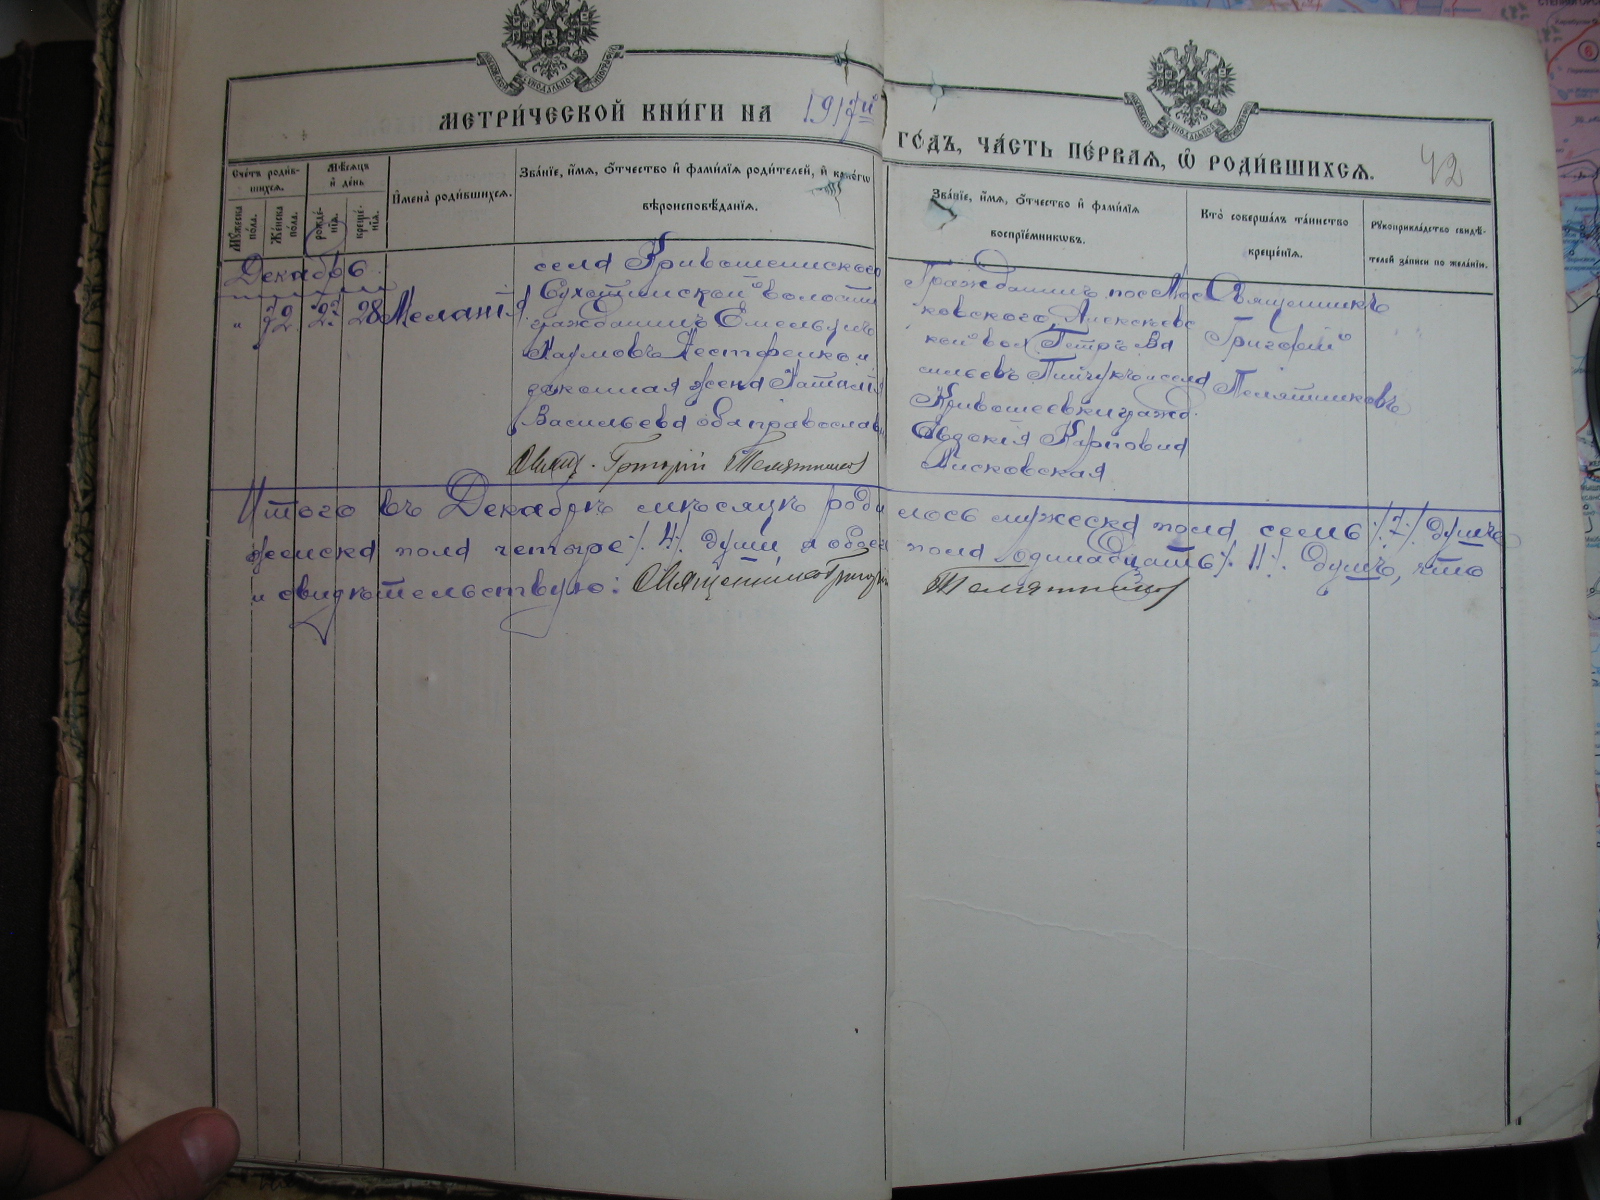 МЕТРИ́ЧЕСКОЙ КНИ́ГИ НА 1917й
ГО́ДЪ, ЧА́СТЬ ПЕ́РВАЯ, Ѽ РОДИ́ВШИХСЯ.
42
Сче́тъ роди́в-
шихся.
Му́жеска по́ла.
Же́нска по́ла.
Мѣ́сяцъ
и҆ де́нь
рожде́-
нїя.
креще́-
нїя.
И҆мена̀ роди́вшихся.
Зва́нїе, и҆́мя, ѻ҆́тчество и҆ фами́лїя роди́телей, и҆ како́гѡ
вѣроисповѣ́данїя.
Зва́нїе, и҆́мя, ѻ҆́тчество и҆ фами́лїя
воспрїе́мникѡвъ.
Кто̀ соверша́лъ та́инство
креще́нїя.
Рꙋкоприкла́дство свидѣ́-
телей за́писи по жела́нїю.
Декабрь
" 72 23 28 Меланія
села Кривошеинского
волости
гражданинъ Емельянъ
Наумовъ Нестеренко и
законная жена Наталія
Васильева оба православн
Свящ. Григорій Телятников
Гражданинъ пос Мос
ковского, Алексѣевс
кой вол Петръ Ва
сильевъ и села
Кривошеевки гражд.
Евдокія Карповна
Лисковская
Священникъ
Григорій
Телятниковъ
Итого въ Декабрѣ мѣсяцѣ родилось мужеска пола семь /7/ душъ
женска пола четыре /4/ души, а обоего пола одинадцать /11/ душъ, что
и свидѣтельствую: Священникъ Григорій Телятников